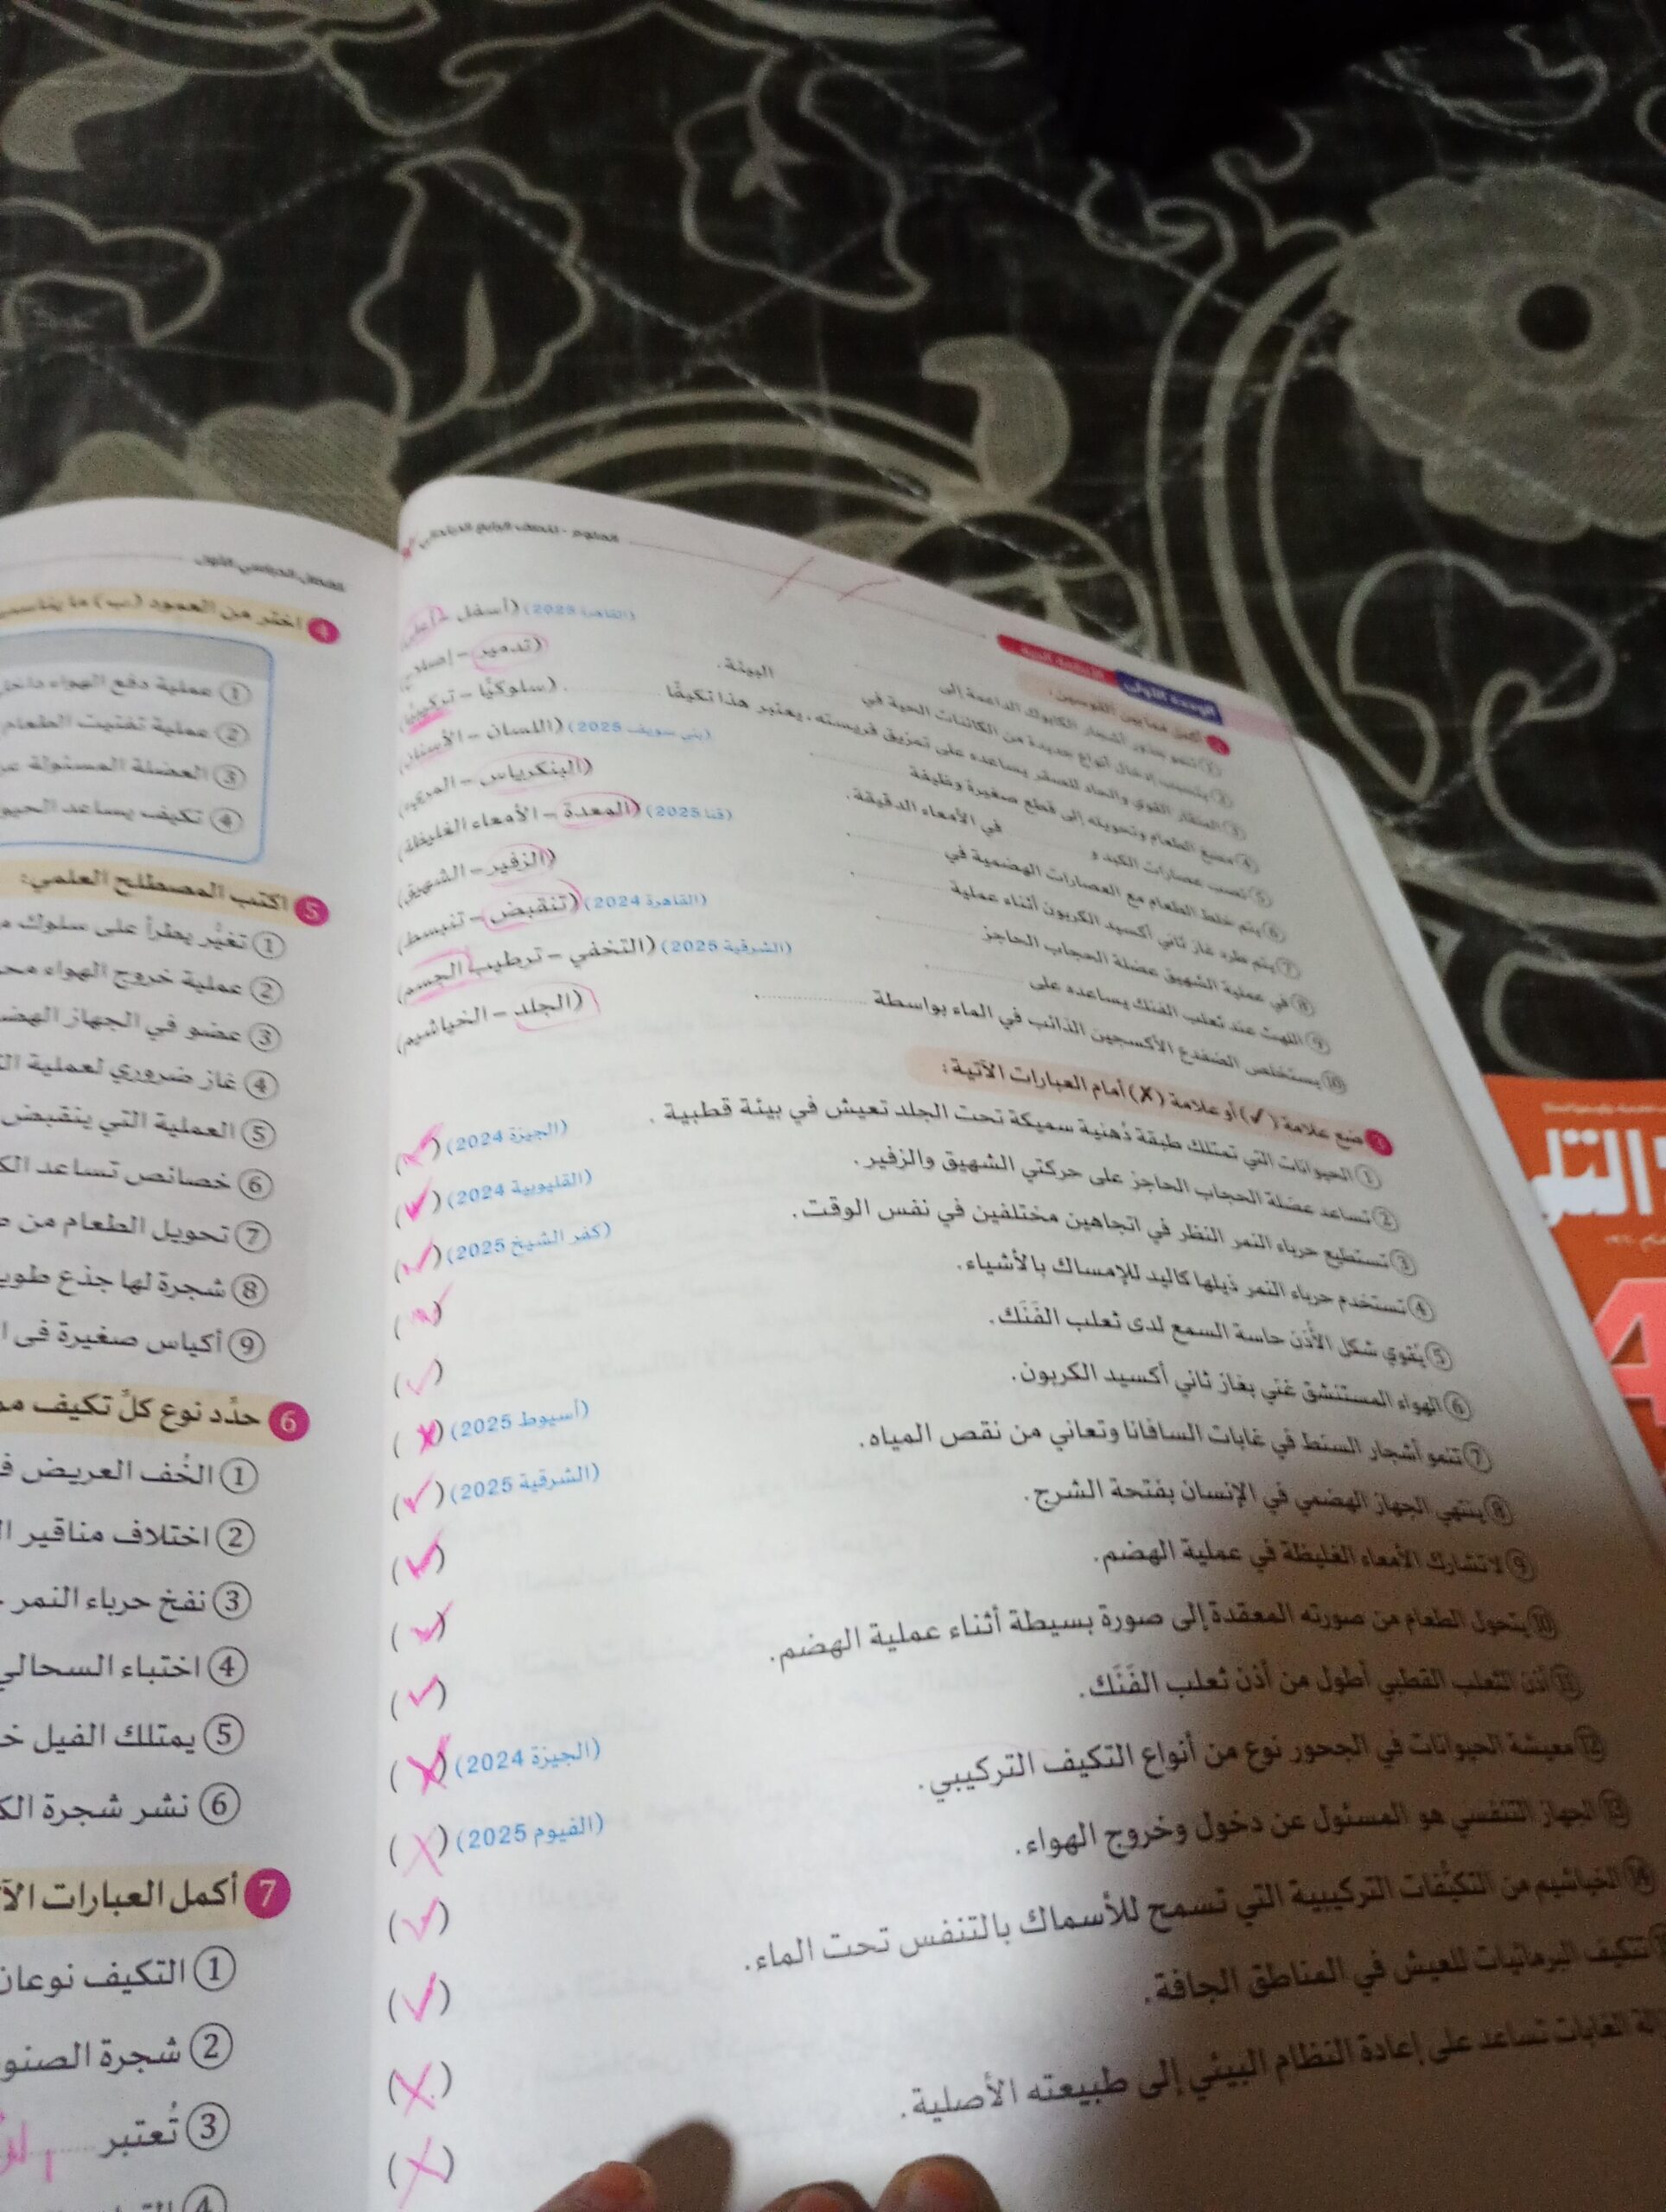 العلوم - للصف الرابع الابتدائي
الوحدة الأولى الأنظمة الحية
2 أكمل مما بين القوسين:
① تنمو جذور أشجار الكابوك الداعمة إلى (القاهرة 2025) (أسفل - أعلى)
② يتسبب إدخال أنواع جديدة من الكائنات الحية في البيئة. (تدمير - إصلاح)
③ المنقار القوي والحاد للصقر يساعده على تمزيق فريسته، يعتبر هذا تكيفًا . (سلوكيًّا - تركيبيًّا)
④ مضغ الطعام وتحويله إلى قطع صغيرة وظيفة (بني سويف 2025) (اللسان - الأسنان)
⑤ تصب عصارات الكبد و في الأمعاء الدقيقة. (البنكرياس - المريء)
⑥ يتم خلط الطعام مع العصارات الهضمية في . (قنا 2025) (المعدة - الأمعاء الغليظة)
⑦ يتم طرد غاز ثاني أكسيد الكربون أثناء عملية . (الزفير - الشهيق)
⑧ في عملية الشهيق عضلة الحجاب الحاجز . (القاهرة 2024) (تنقبض - تنبسط)
⑨ اللهث عند ثعلب الفنك يساعده على . (الشرقية 2025) (التخفي - ترطيب الجسم)
⑩ يستخلص الضفدع الأكسجين الذائب في الماء بواسطة . (الجلد - الخياشيم)
3 ضع علامة (✓) أو علامة (✗) أمام العبارات الآتية:
① الحيوانات التي تمتلك طبقة دُهنية سميكة تحت الجلد تعيش في بيئة قطبية . (الجيزة 2024) (✓)
② تساعد عضلة الحجاب الحاجز على حركتي الشهيق والزفير. (القليوبية 2024) (✓)
③ تستطيع حرباء النمر النظر في اتجاهين مختلفين في نفس الوقت. (كفر الشيخ 2025) (✓)
④ تستخدم حرباء النمر ذيلها كاليد للإمساك بالأشياء. (✓)
⑤ يُقوي شكل الأُذن حاسة السمع لدى ثعلب الفَنَك. (✓)
⑥ الهواء المستنشق غني بغاز ثاني أكسيد الكربون. (أسيوط 2025) (✗)
⑦ تنمو أشجار السنط في غابات السافانا وتعاني من نقص المياه. (الشرقية 2025) (✓)
⑧ ينتهي الجهاز الهضمي في الإنسان بفتحة الشرج. (✓)
⑨ لا تشارك الأمعاء الغليظة في عملية الهضم. (✓)
⑩ يتحول الطعام من صورته المعقدة إلى صورة بسيطة أثناء عملية الهضم. (✓)
⑪ أذن الثعلب القطبي أطول من أذن ثعلب الفَنَك. (الجيزة 2024) (✗)
⑫ معيشة الحيوانات في الجحور نوع من أنواع التكيف التركيبي. (الفيوم 2025) (✗)
⑬ الجهاز التنفسي هو المسئول عن دخول وخروج الهواء. (✓)
⑭ الخياشيم من التكيُّفات التركيبية التي تسمح للأسماك بالتنفس تحت الماء. (✓)
تتكيف البرمائيات للعيش في المناطق الجافة. (✗)
الغابات تساعد على إعادة النظام البيئي إلى طبيعته الأصلية. (✗)
الفصل الدراسي الأول
4 اختر من العمود (ب) ما يناسب
① عملية دفع الهواء داخل
② عملية تفتيت الطعام
③ العضلة المسئولة عن
④ تكيف يساعد
5 اكتب المصطلح العلمي:
① تغيُّر يطرأ على سلوك
② عملية خروج الهواء
③ عضو في الجهاز
④ غاز ضروري لعملية
⑤ العملية التي ينقبض
⑥ خصائص تساعد
⑦ تحويل الطعام من
⑧ شجرة لها جذع
⑨ أكياس صغيرة في
6 حدِّد نوع كلِّ تكيف
① الخُف العريض
② اختلاف مناقير
③ نفخ حرباء النمر
④ اختباء السحالي
⑤ يمتلك الفيل
⑥ نشر شجرة
7 أكمل العبارات
① التكيف نوعان
② شجرة
③ تُعتبر
④
التل
4